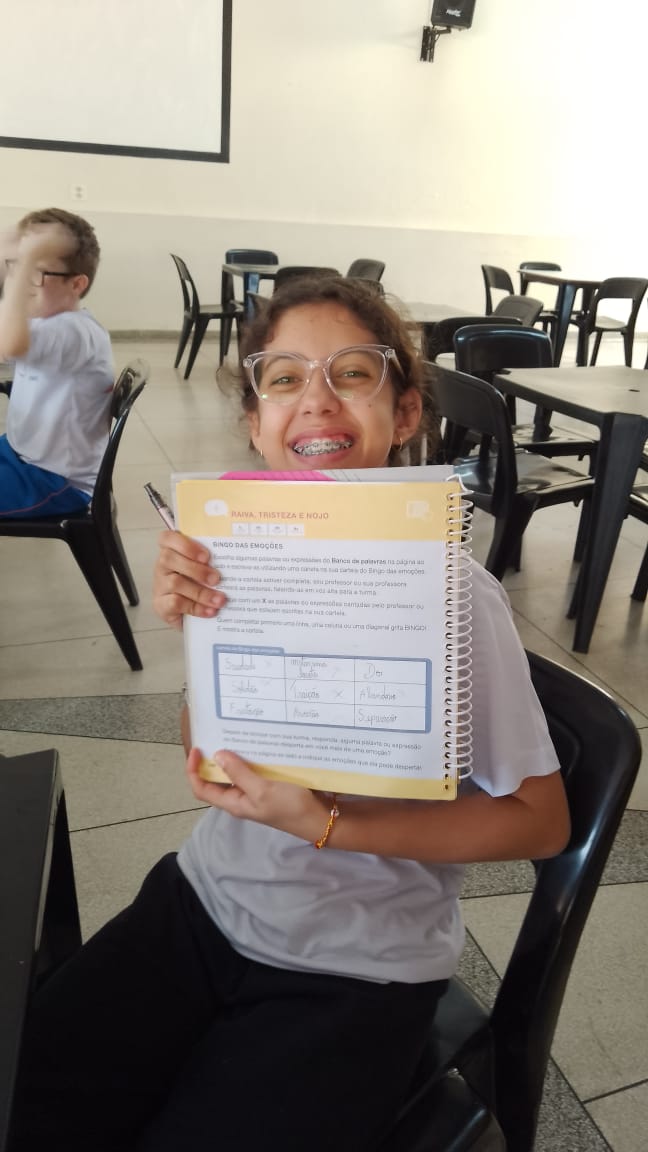 RAIVA, TRISTEZA E NOJO
BINGO DAS EMOÇÕES
Escolha algumas palavras ou expressões do Banco de palavras na página ao
lado e escreva-as utilizando uma caneta na sua cartela do Bingo das emoções.
a cartela estiver completa, seu professor ou sua professora
as palavras, falando-as em voz alta para a turma.
com um X as palavras ou expressões cantadas pelo professor ou
que estejam escritas na sua cartela.
Quem completar primeiro uma linha, uma coluna ou uma diagonal grita BINGO!
E mostra a cartela.
Cartela do Bingo das emoções
Saudade Dor
Solidão Traição X Abandono
Frustração Separação
Depois de brincar com sua turma, responda: alguma palavra ou expressão
do Banco de palavras desperta em você mais de uma emoção?
na página ao lado e indique as emoções que ela pode despertar.